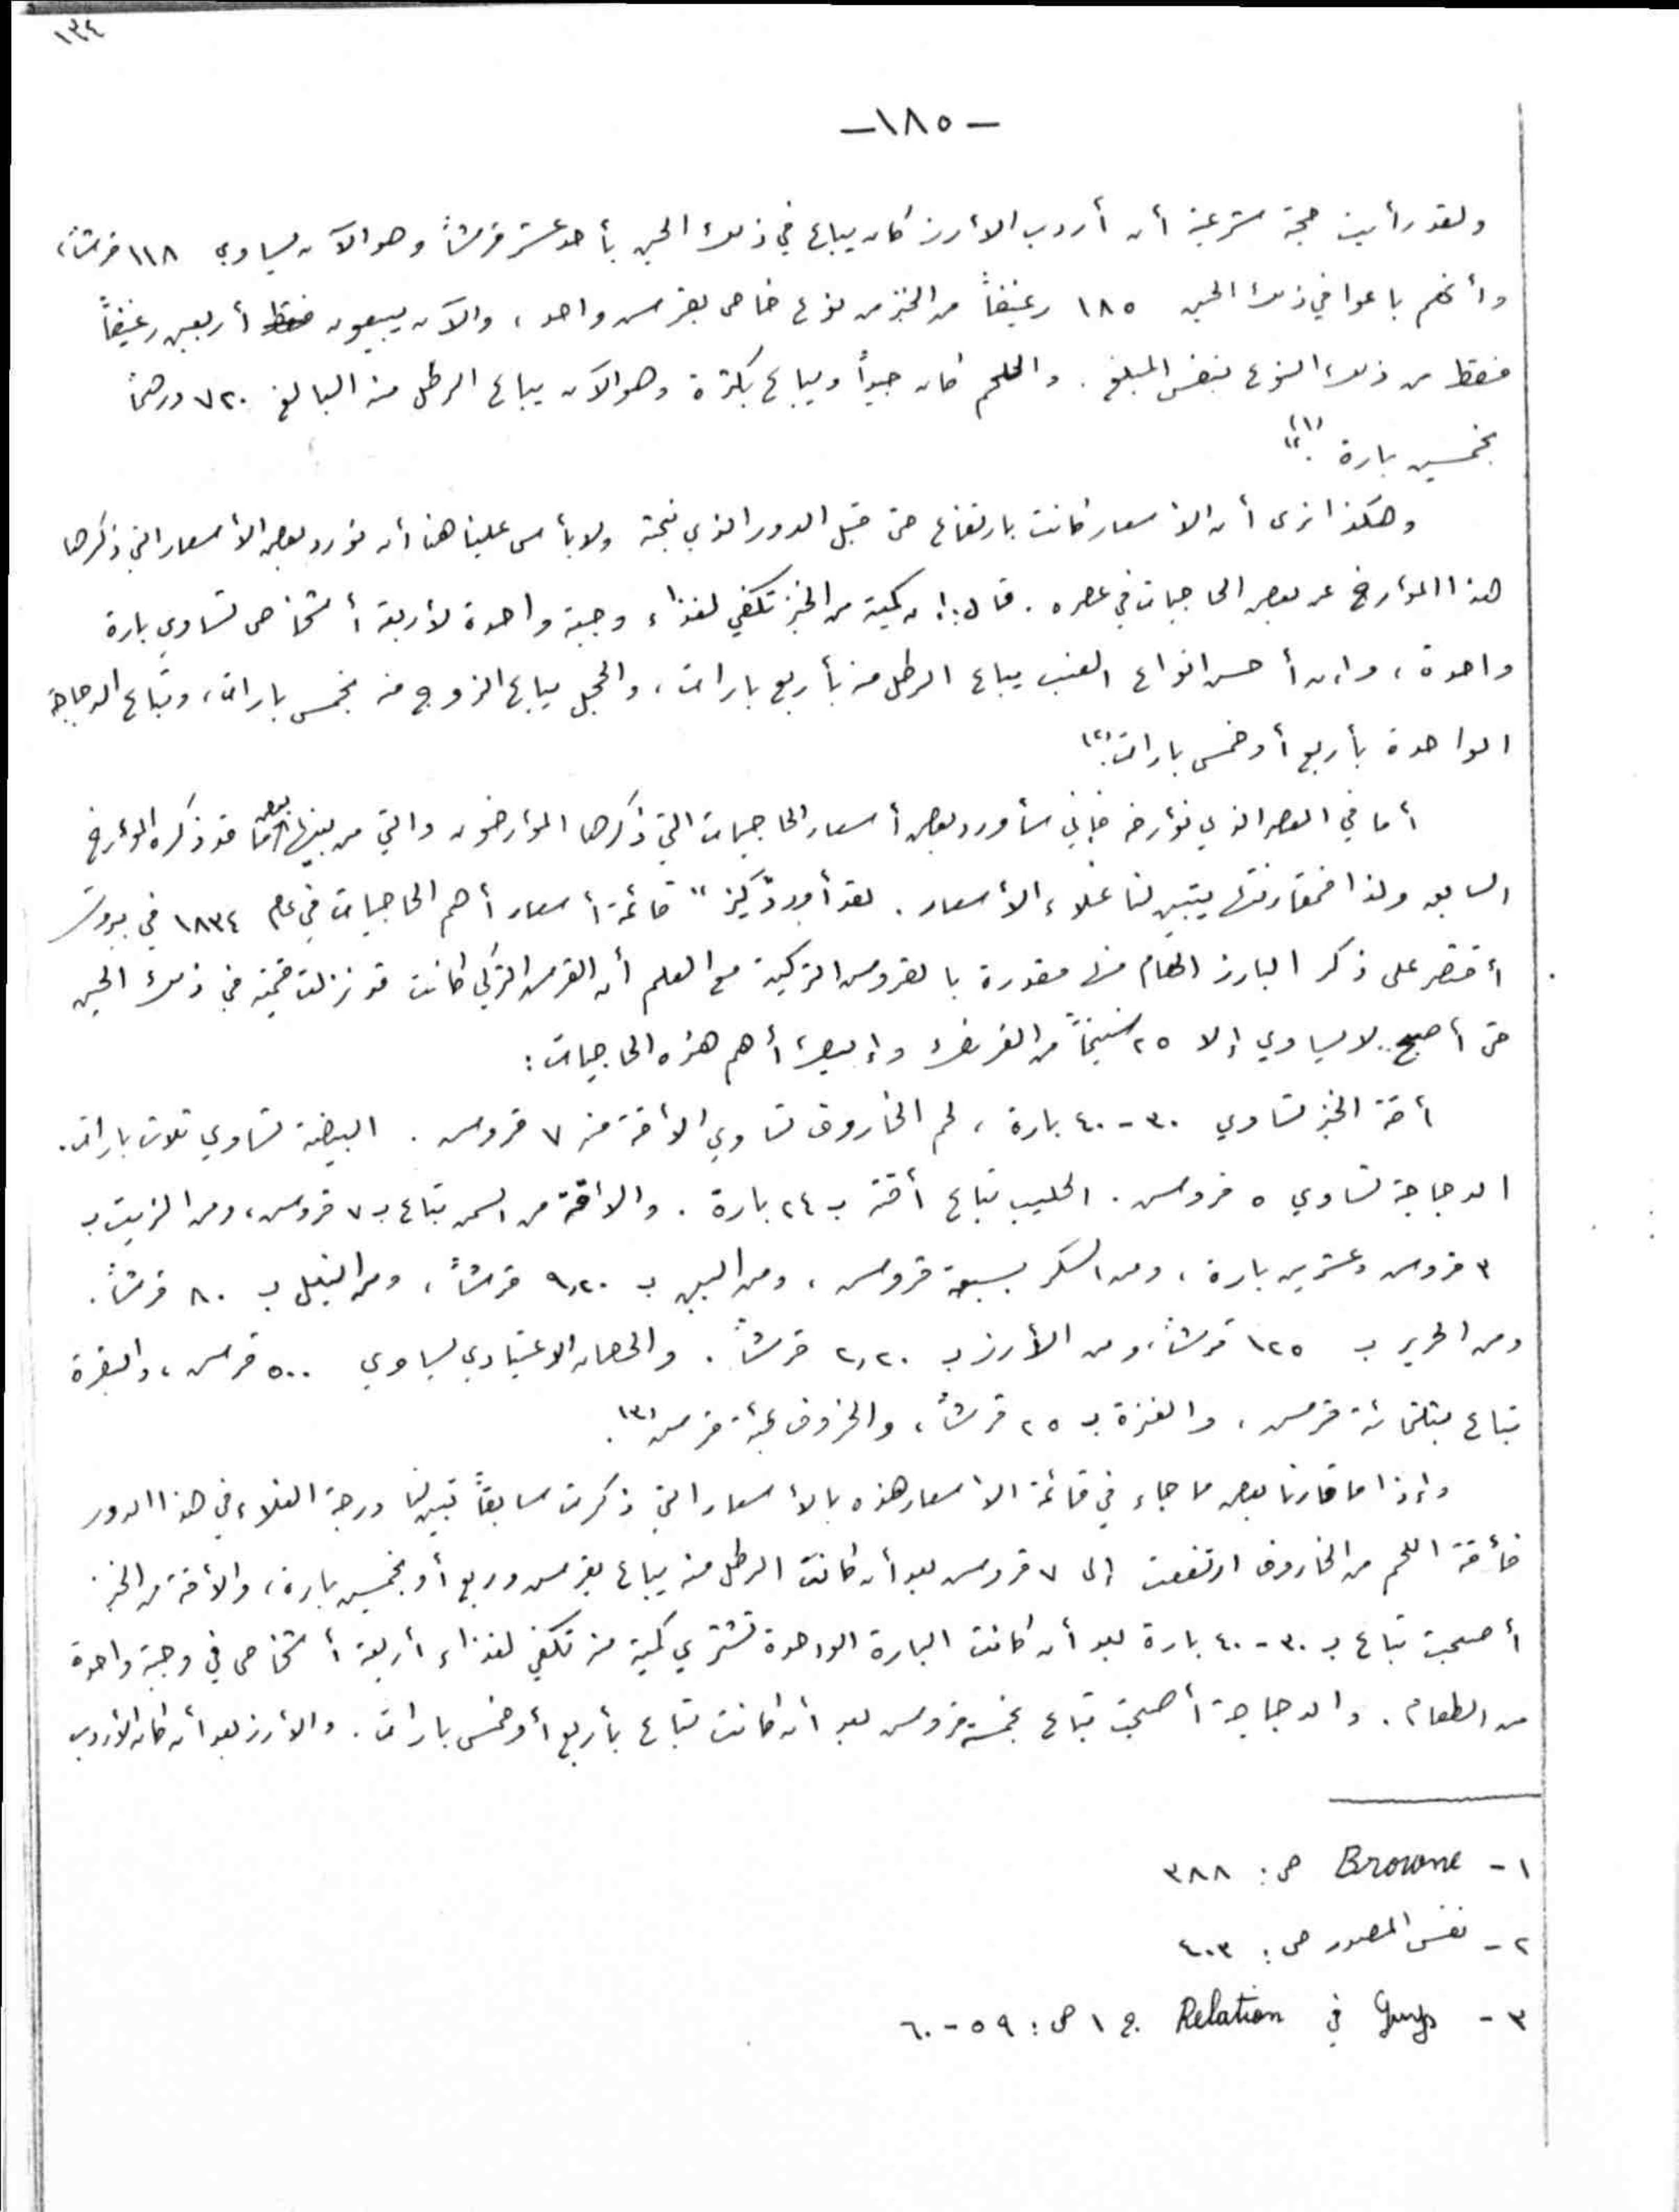 ١٣٤
-١٨٥-
ولقد رأيت حجة شرعية أن أردب الأرز كان يباع في ذلك الحين بأحد عشر قرشاً وهو الآن يساوي ١١٨ قرشاً،
وأنهم باعوا في ذلك الحين ١٨٥ رغيفاً من الخبز من نوع خاص بقرش واحد، والآن يبيعون فقط أربعين رغيفاً
فقط من ذلك النوع بنفس المبلغ. واللحم كان جيداً ويباع بكثرة وهو الآن يباع الرطل منه البالغ ٧٢٠ درهماً
بخمسين بارة (١)."
وهكذا نرى أن الأسعار كانت بارتفاع حتى قبل الدور الذي نبحثه ولا بأس علينا هنا أن نورد بعض الأسعار التي ذكرها
هذا المؤرخ عن بعض الحاجيات في عصره. قال: إن كمية من الخبز تكفي لغذاء وجبة واحدة لأربعة أشخاص تساوي بارة
واحدة، وإن أحسن انواع العنب يباع الرطل منه بأربع بارات، والحجل يباع الزوج منه بخمس بارات، وتباع الدجاجة
الواحدة بأربع أو خمس بارات (٢).
أما في العصر الذي نؤرخه فإني سأورد بعض أسعار الحاجيات التي ذكرها المؤرخون والتي من بينها بعض ما قد ذكره المؤرخ
السابق ولذا فمقارنتها يتبين لنا غلاء الأسعار. لقد أورد "كيز" قائمة أسعار أهم الحاجيات في عام ١٨٣٤ في بيروت
أقتصر على ذكر البارز الهام منها مقدرة بالقروش التركية مع العلم أن القرش التركي كانت قد نزلت قيمته في ذلك الحين
حتى أصبح لا يساوي إلا ٢٥ سنتيماً من الفرنك وإليك أهم هذه الحاجيات:
أقة الخبز تساوي ٣٠-٤٠ بارة، لحم الخاروف تساوي الأقة منه ٧ قروش. البيضة تساوي ثلاث بارات.
الدجاجة تساوي ٥ قروش. الحليب تباع أقته ب ٢٤ بارة. والأقة من السمن تباع ب ٧ قروش، ومن الزيت ب
٣ قروش وعشرين بارة، ومن السكر بسبعة قروش، ومن البن ب ٩,٢٠ قرشاً، ومن النيل ب ٨٠ قرشاً.
ومن الحرير ب ١٢٥ قرشاً، ومن الأرز ب ٢,٢٠ قرشاً. والحصان الاعتيادي يساوي ٥٠٠ قرش، والبقرة
تباع بثلثمائة قرش، والعنزة ب ٢٥ قرشاً، والخروف بمئة قرش (٣).
وإذا ما قارنا بعض ما جاء في قائمة الأسعار هذه بالأسعار التي ذكرت سابقاً تبين لنا درجة الغلاء في هذا الدور
فأقة اللحم من الخاروف ارتفعت إلى ٧ قروش بعد أن كانت الرطل منه يباع بقرش وربع أو بخمسين بارة، والأقة من الخبز
أصبحت تباع ب ٣٠-٤٠ بارة بعد أن كانت البارة الواحدة تشتري كمية منه تكفي لغذاء أربعة أشخاص في وجبة واحدة
من الطعام. والدجاجة أصبحت تباع بخمسة قروش بعد أن كانت تباع بأربع أو خمس بارات. والأرز بعد أن كان الأردب
١- Browne ص: ٣٨٨
٢- نفس المصدر ص: ٤٠٣
٣- Guys في Relation ج ١ ص: ٥٩-٦٠